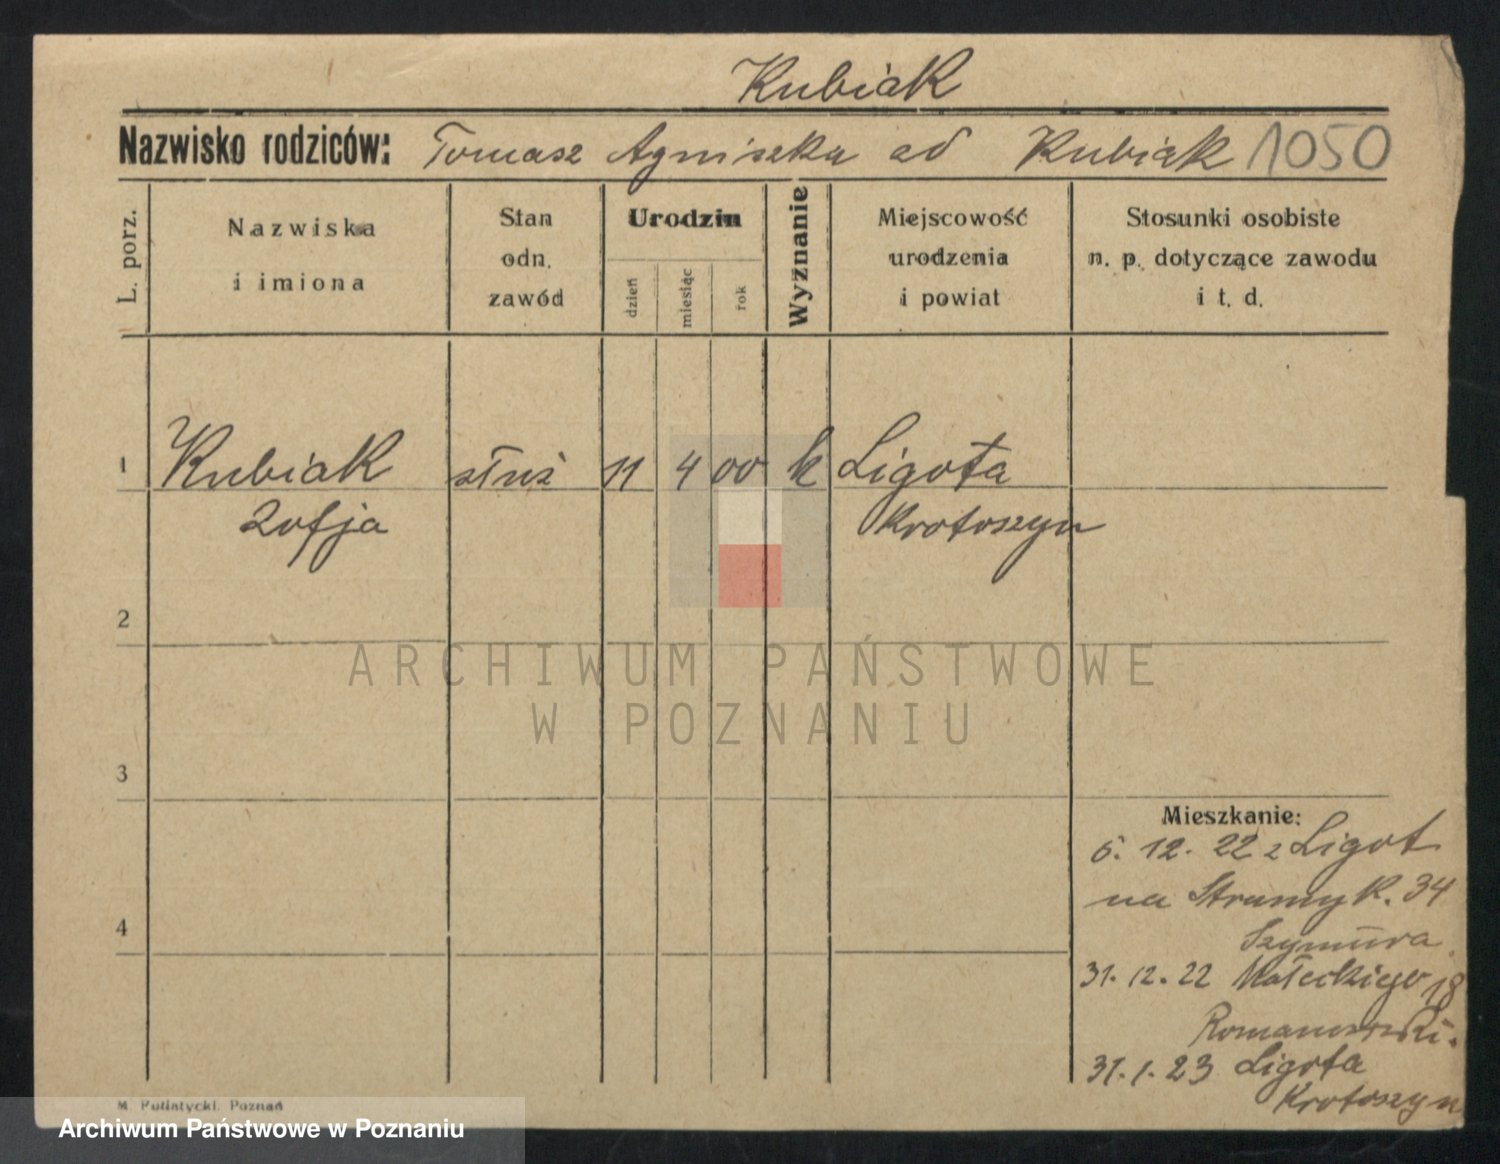 Kubiak
Nazwisko rodziców: Tomasz Agniszka od Kubiak 1050
L. porz.
Nazwiska
i imiona
Stan
odn.
zawód
Urodzin
dzień
miesiąc
rok
Wyznanie
Miejscowość
urodzenia
i powiat
Stosunki osobiste
n. p. dotyczące zawodu
i t. d.
1 Kubiak służ 11 4 00 k Ligota
Zofja Krotoszyn
2
ARCHIWUM PAŃSTWOWE
W POZNANIU
3
Mieszkanie:
6. 12. 22 z Ligot
na Strumyk. 34
4
Szymura
31. 12. 22 Małeckiego 18
Romanowski.
31. 1. 23 Ligota
Krotoszyn
M. Putiatycki, Poznań
Archiwum Państwowe w Poznaniu